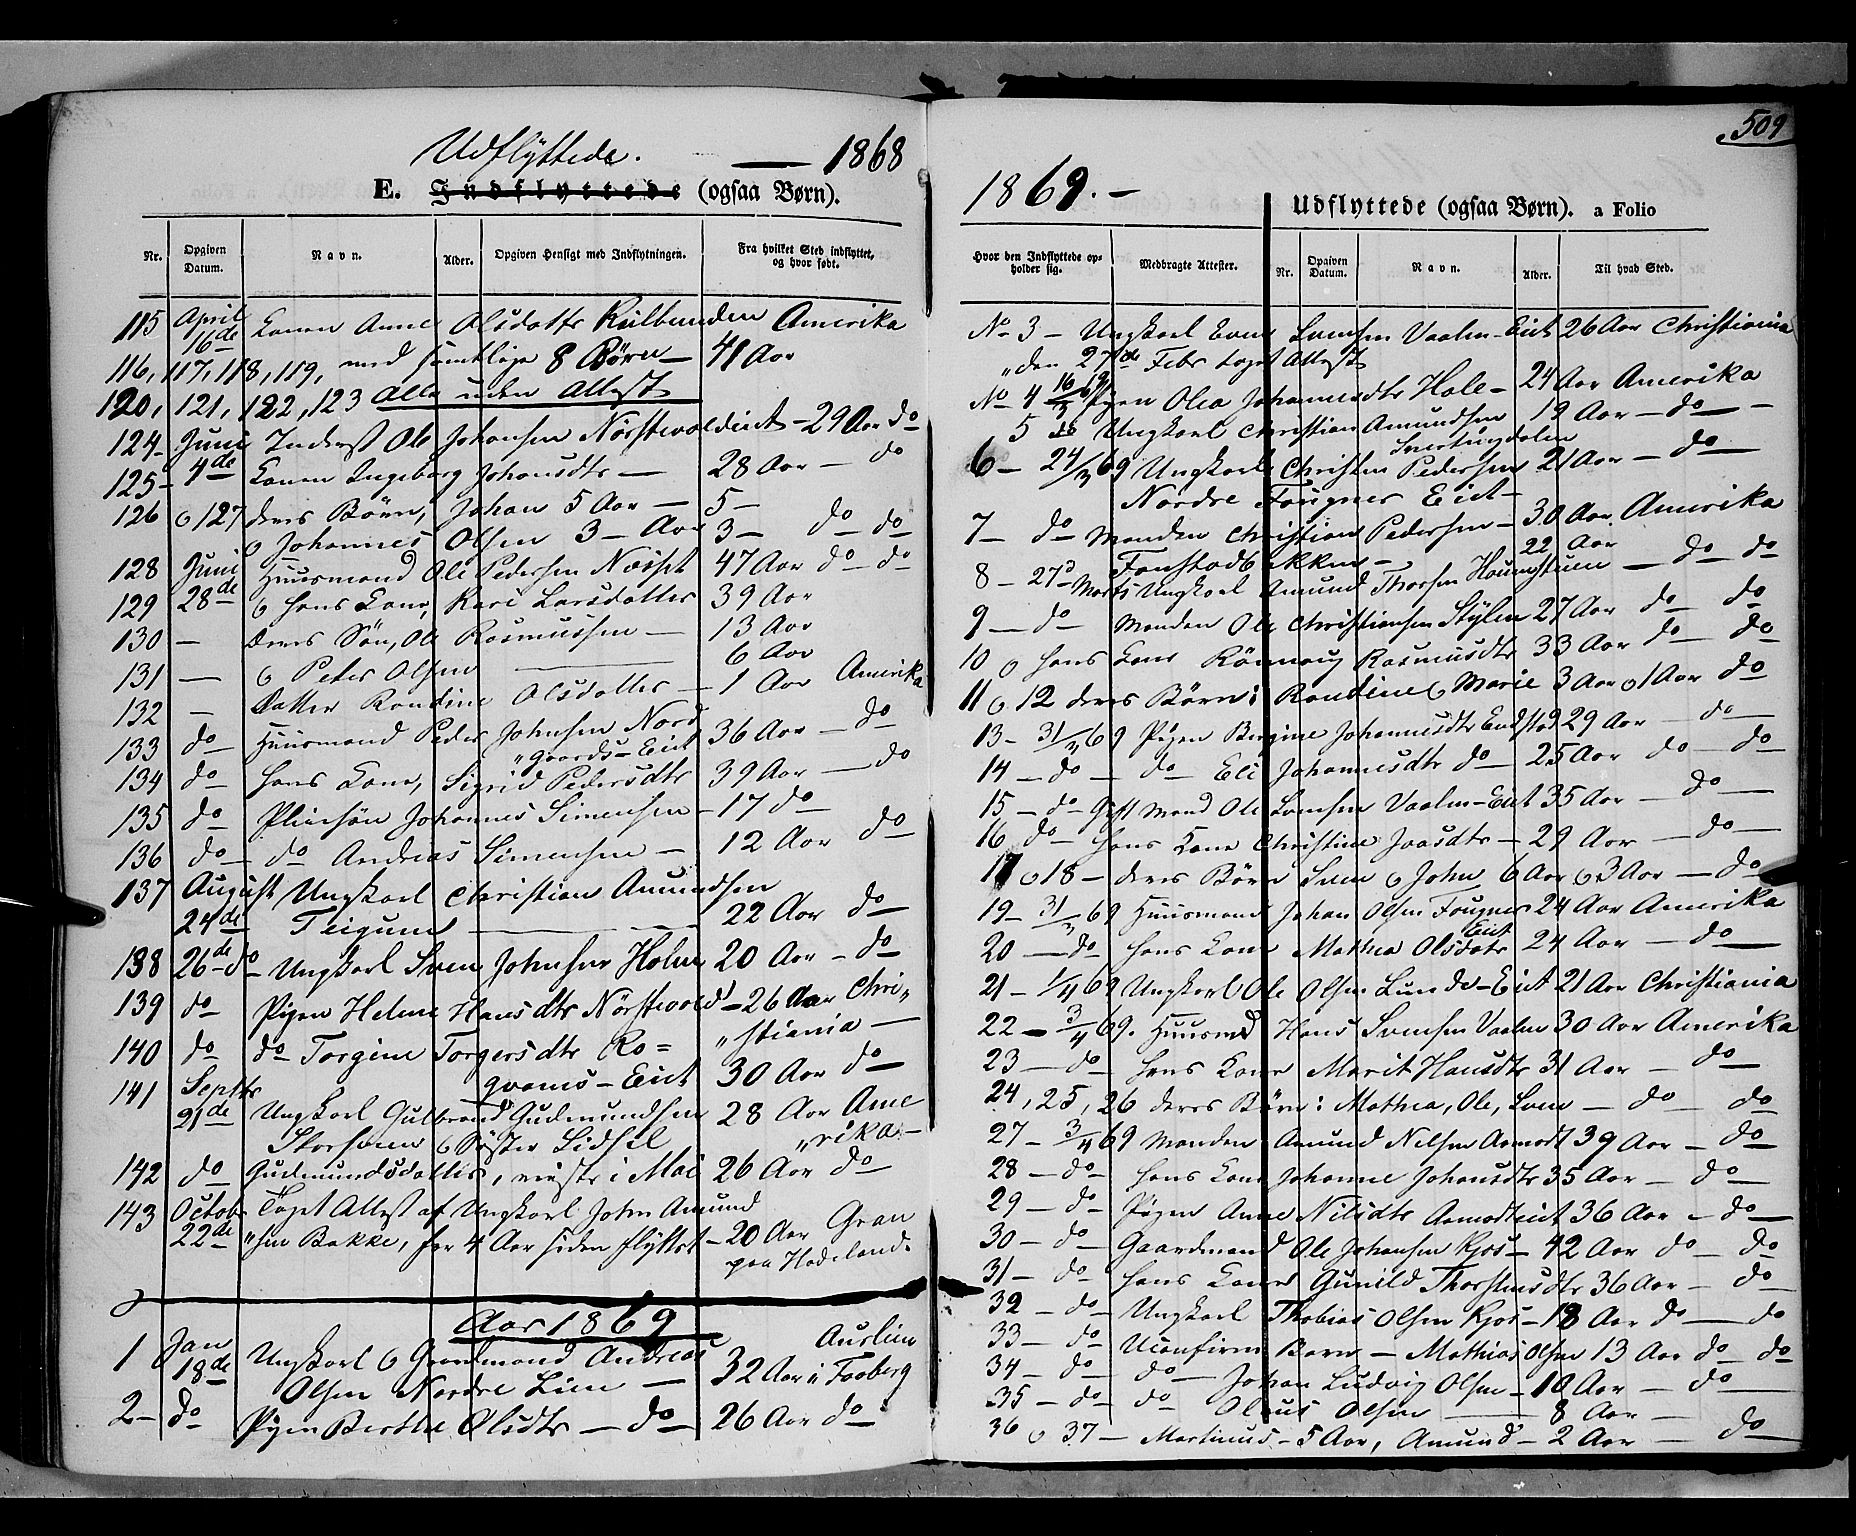 Udflyttede. — 1868
E. Indflyttede (ogsaa Børn).
Nr. Opgiven Datum. Navn. Alder. Opgiven Hensigt med Indflytningen. Fra hvilket Sted indflyttet, og hvor født.
115 April 16de Konen Anne Olsdatts Amerika
116, 117, 118, 119, med samtlige 8 Börn — 41 Aar
120, 121, 122, 123 Alle uden Attest
124 — Juni 4de Inderst Ole Johansen Nörstevoldeiet — 29 Aar do
125 — Konen Ingeborg Johansdtr — 28 Aar — do
126 o 127 deres Börn, Johan 5 Aar — 5 —
o Johannes Olsen 3 — Aar 3 — do do
128 Juni 28de Huusmand Ole Pedersen Nosset 47 Aar do — do
129 o hans Kone, Kari Larsdatter 39 Aar
130 — deres Sön, Ole Rasmussen — 13 Aar
131 — o Peter Olsen — 6 Aar
132 — Datter Rondine Olsdatter — 1 Aar Amerika
133 do — Huusmand Peder Johnsen Nord „gaards-Eiet 36 Aar — do
134 do — hans Kone, Sigrid Pedersdtr 39 Aar — do
135 do Pleiesön Johannes Simensen — 17 do
136 do — do Andreas Simensen — 12 Aar do
137 August 24de Ungkarl Christian Amundsen
Teigum — 22 Aar do —
138 26de do — Ungkarl Sven Johnsen Holen 20 Aar — do
139 do Pigen Helene Hansdtr Nörstevold — 26 Aar Chri„
140 do do Torgine Torgersdtr Ro= „stiania —
gvams — Eiet 30 Aar do —
141 Septbr 21de Ungkarl Gulbrand Gudmundsen 28 Aar Ame
Storsveen o Söster Sidsel „rika —
142 do Gudmundsdatter, reiste i Mai 26 Aar do
143 Octobr 22de Toget Attest af Ungkarl John Amund
„sen Bakke, for 4 Aar siden flyttet — 20 Aar Gran
paa Hadeland.
Aar 1869
1 Jan 18de Ungkarl o Gaardmand Andreas Auslien
Olsen Nordre Lien — 32 Aar i Faaberg
2 — do Pigen Berthe Olsdtr — do — 26 Aar do
509
1869. —
Udflyttede (ogsaa Børn). a Folio
Hvor den Indflyttede opholder sig. Medbragte Attester. Nr. Opgiven Datum. Navn. Alder. Til hvad Sted.
No 3 — Ungkarl Even Svensen Vaalen-Eiet 26 Aar Christiania
„den 27de Febr toget Attest
No 4 Pigen Olea Johannesdtr Hole — 24 Aar Amerika
5 Ungkarl Christian Amundsen 19 Aar — do —
Svertingdalen
6 — 24/3 69 Ungkarl Christen Pedersen 21 Aar — do —
Nordre Fougner Eiet —
7 — do — Manden Christian Pedersen — 30 Aar Amerika
Fonstadbekken — 22 Aar
8 — 27d Marts Ungkarl Amund Thorsen — do — do
9 — do — Manden Ole Christiansen Stylen 27 Aar do — do
10 o hans Kone Rönnaug Rasmusdtr 33 Aar do — do
11 o 12 deres Börn: Rondine o Marie 3 Aar o 1 Aar do
13 — 31/3 69 Pigen Birgine Johannesdtr 29 Aar — do —
14 — do — do — Eli Johannesdtr do — 25 Aar do — do
15 — do Gift Mand Ole Svensen Vaalen-Eiet 35 Aar — do —
16 do — hans Kone Christine Joasdtr — 29 Aar — do —
17 o 18 — deres Börn Sven o John 6 Aar o 3 Aar — do
19 — 31/3 69 Huusmand Johan Olsen Fougner Eiet 24 Aar Amerika
20 — do — hans Kone Mathea Olsdatr 24 Aar — do —
21 — 1/4 69 Ungkarl Ole Olsen Lunde-Eiet 21 Aar Christiania
22 — 3/4 69. Huusmd Hans Svensen Vaalen 30 Aar Amerika
23 — do — hans Kone Marit Hansdtr 31 Aar — do —
24, 25, 26 deres Börn: Mathea, Ole, Sven — do — do
27 — 3/4 69 Manden Amund Nilsen Aamodt 39 Aar — do
28 — do — hans Kone Johanne Johansdtr 35 Aar — do
29 — do — Pigen Anne Nilsdtr Aamodteiet 36 Aar — do —
30 — do — Gaardmand Ole Johansen Kjos — 42 Aar do — do
31 — do — hans Kone Gunild Thorstensdtr 36 Aar — do
32 — do — Ungkarl Thobias Olsen Kjos — 18 Aar do — do
33 — do — Uconfirm Barn — Mathias Olsen 13 Aar do — do
34 — do — do — Johan Ludvig Olsen — 10 Aar — do —
35 — do — do Olaus Olsen — 8 Aar —
36 o 37 — Martinus — 5 Aar, Amund — 2 Aar — do —